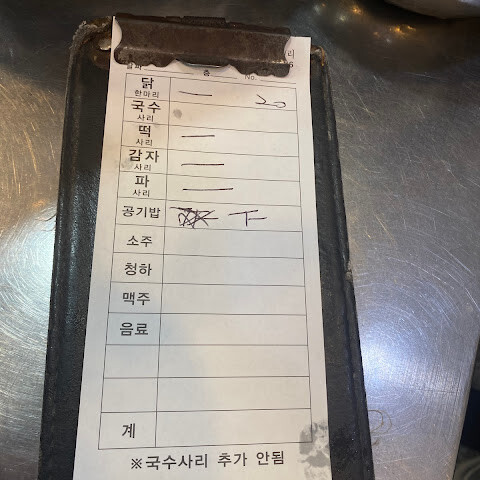 층 No.
닭 한마리 一 20
국수 사리
떡 사리 一
감자 사리 一
파 사리 一
공기밥 下
소주
청하
맥주
음료
계
※국수사리 추가 안됨